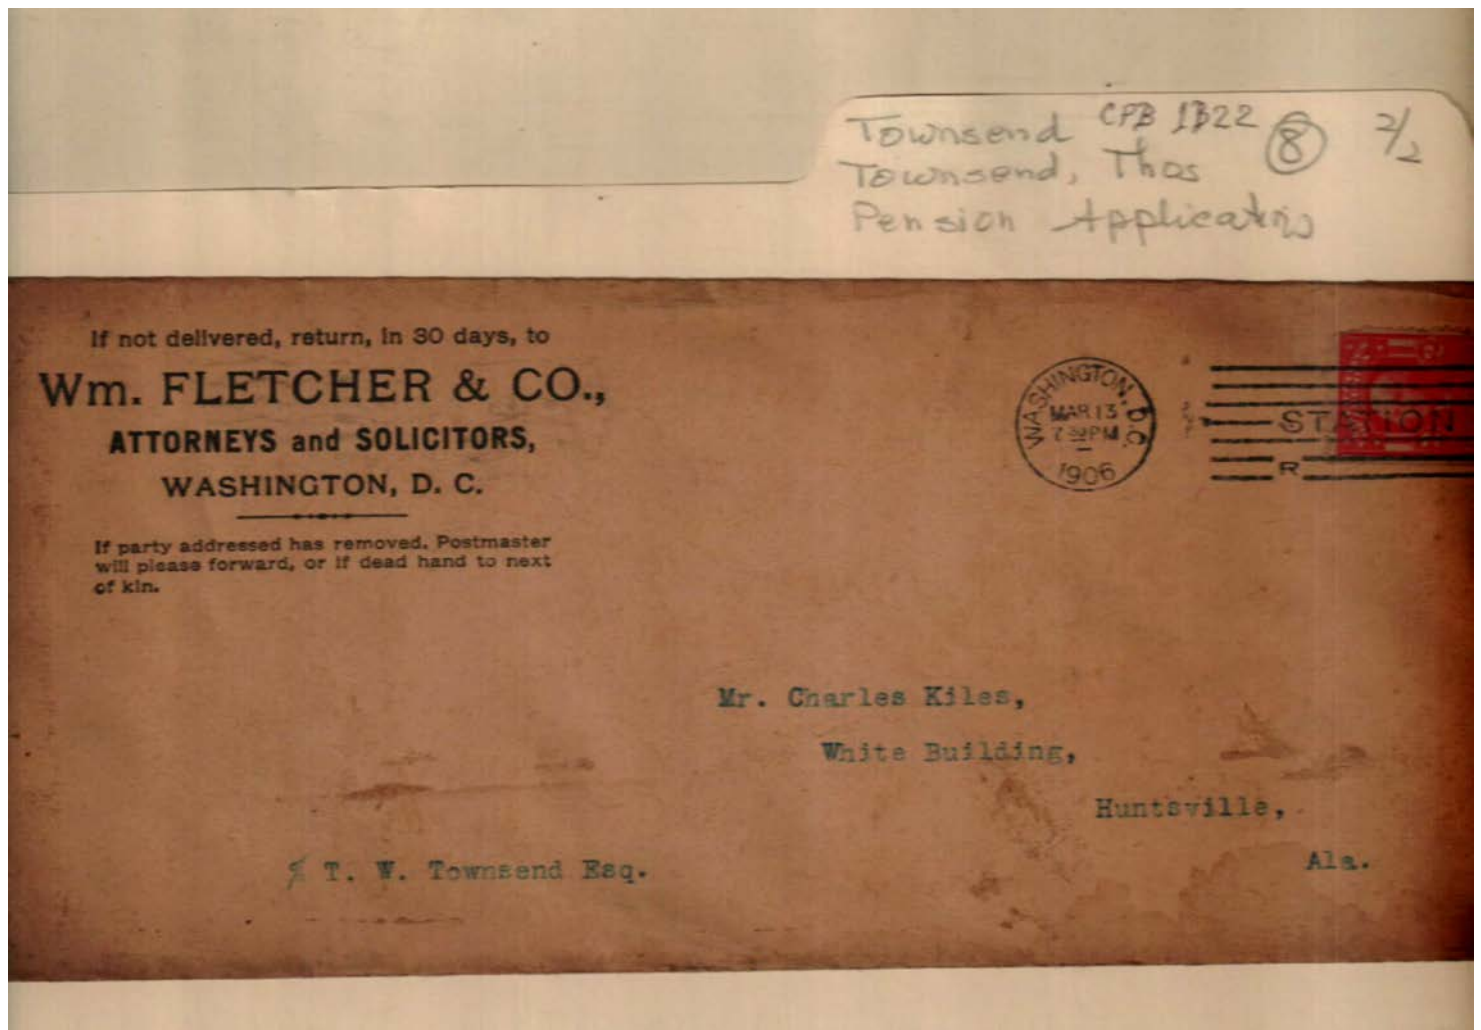 Townsend CPB 1B22 8 2/2
Townsend, Thos
Pension Applications
If not delivered, return, in 30 days, to
Wm. FLETCHER & CO.,
ATTORNEYS and SOLICITORS,
WASHINGTON, D. C.
If party addressed has removed, Postmaster
will please forward, or if dead hand to next
of kin.
WASHINGTON, D.C.
MAR 13
7 30 PM
1906
STATION
R
Mr. Charles Kiles,
White Building,
Huntsville,
Ala.
℅ T. W. Townsend Esq.